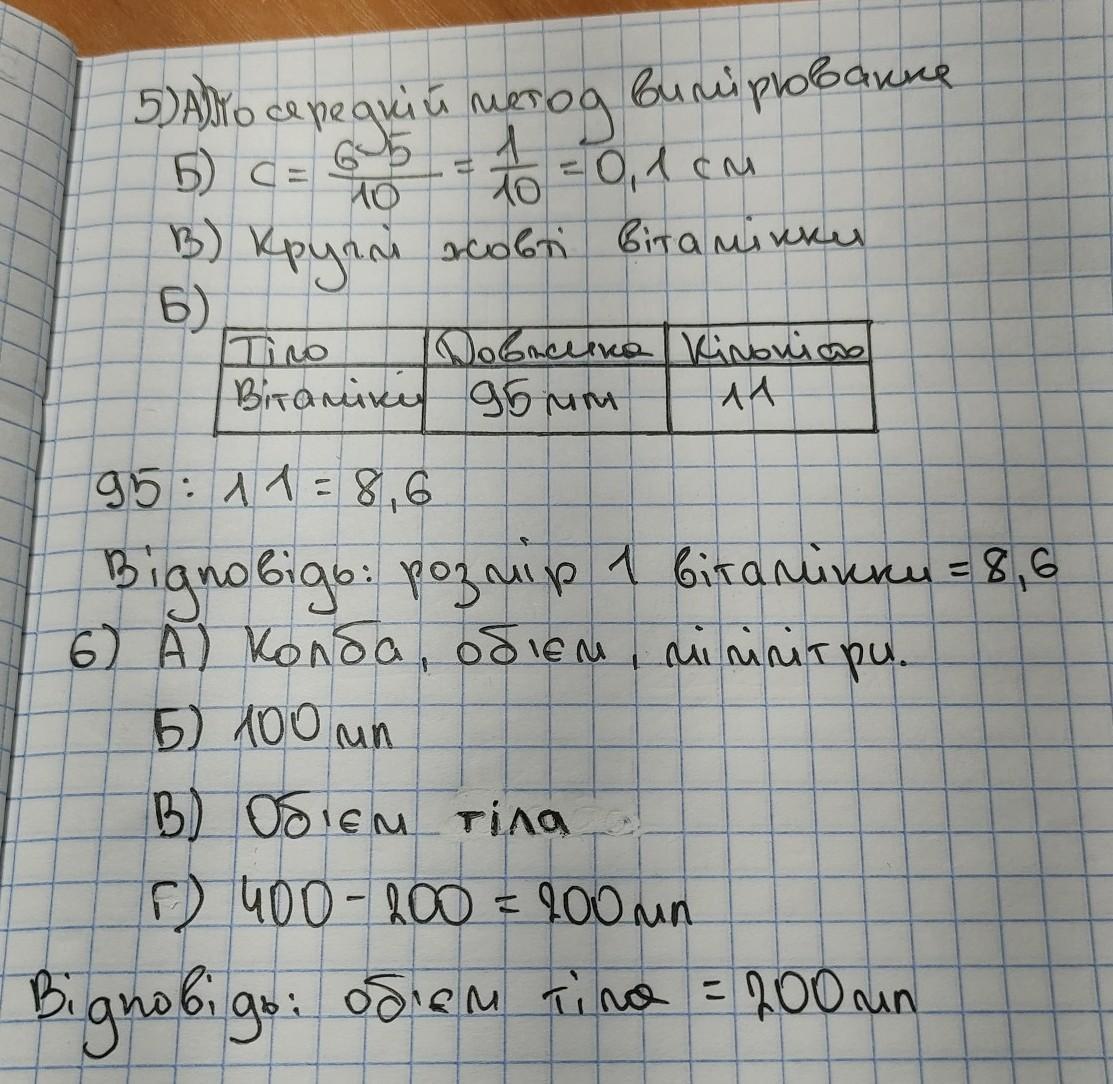 5) А) Посередній метод вимірювання
Б) c = 6-5/10 = 1/10 = 0,1 см
В) Круглі жовті вітамінки
Б)
Тіло Довжина Кількість
Вітаміки 95 мм 11
95 : 11 = 8,6
Відповідь: розмір 1 вітамінки = 8,6
6) А) Колба, обієм, мілілітри.
Б) 100 мл
В) Обієм тіла
Г) 400 - 200 = 200 мл
Відповідь: обієм тіла = 200 мл